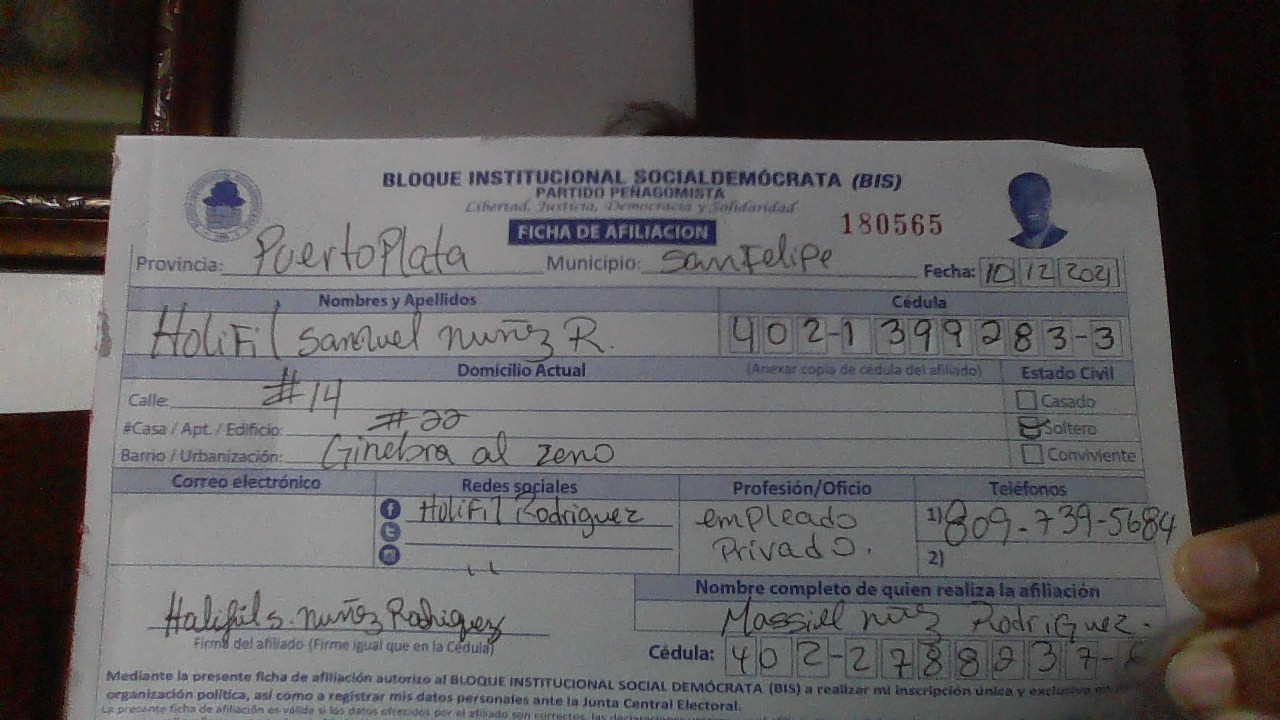 BLOQUE INSTITUCIONAL SOCIALDEMÓCRATA (BIS)
PARTIDO PEÑAGOMISTA
Libertad, Justicia, Democracia y Solidaridad
FICHA DE AFILIACION
180565
Provincia: PuertoPlata Municipio: San Felipe Fecha: 10 12 2021
Nombres y Apellidos Cédula
HoliFil Samuel Nuñez R. 402-1399283-3
Domicilio Actual (Anexar copia de cédula del afiliado) Estado Civil
Calle: #14 Casado
#Casa / Apt. / Edificio: #22 Soltero
Barrio / Urbanización: Ginebra al zeno Conviviente
Correo electrónico Redes sociales Profesión/Oficio Teléfonos
HoliFil Rodriguez empleado 1) 809-739-5684
Privado. 2)
Nombre completo de quien realiza la afiliación
Holifil s. nuñez Rodriguez Massiel Rodriguez.
Firma del afiliado (Firme igual que en la Cédula)
Cédula: 402-2788237-
Mediante la presente ficha de afiliación autorizo al BLOQUE INSTITUCIONAL SOCIAL DEMÓCRATA (BIS) a realizar mi inscripción única y exclusiva en
organización política, así como a registrar mis datos personales ante la Junta Central Electoral.
La presente ficha de afiliación es válida si los datos ofrecidos por el afiliado son correctos, las